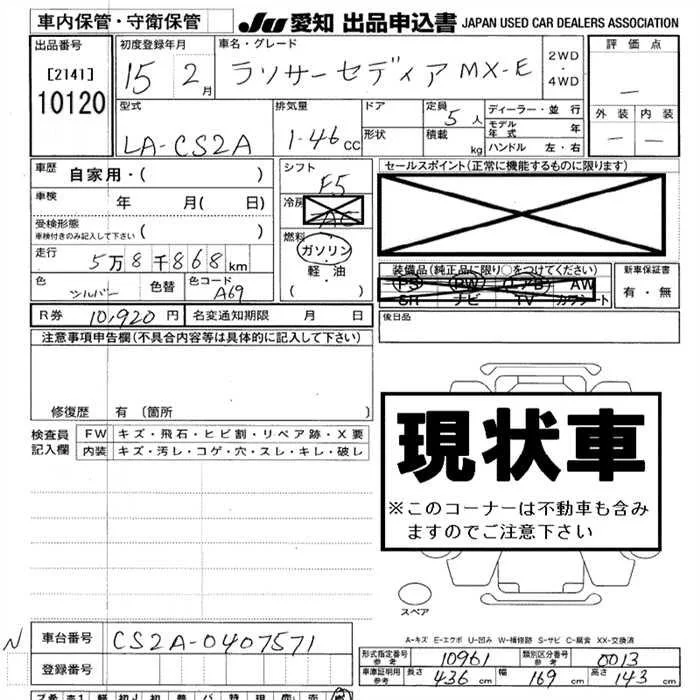 車内保管・守衛保管 JU 愛知 出品申込書 JAPAN USED CAR DEALERS ASSOCIATION
出品番号
[2141]
10120
初度登録年月
15 2月
車名・グレード
ラソサーセディア MX-E
2WD
・
4WD
評価点
―
外装 内装
― ―
型式
LA-CS2A
排気量
1.46 CC
ドア
形状
定員 5人
積載 kg
ディーラー・並行
モデル年式 年
ハンドル 左・右
車歴 自家用・( )
車検 年 月( 日)
受検形態
車検付きのみ記入して下さい ( )
走行
5万8千868km
色 シルバー 色替 色コード A69
シフト
F5
冷房
AC
燃料
ガソリン
軽・油
・( )
セールスポイント(正常に機能するものに限ります)
装備品(純正品に限り○をつけてください)
PS PW エアB AW
SR ナビ TV カワシート
新車保証書
有・無
R券 10,920円 名変通知期限 月 日
後日品
注意事項申告欄(不具合内容等は具体的に記入して下さい)
修復歴 有(箇所 )
検査員記入欄
FW キズ・飛石・ヒビ割・リペア跡・X要
内装 キズ・汚レ・コゲ・穴・スレ・キレ・破レ
現状車
※このコーナーは不動車も含み
ますのでご注意下さい
スペア
A-キズ E-エクボ U-凹み W-補修跡 S-サビ C-腐食 XX-交換済
N
車台番号 CS2A-0407571
登録番号
形式指定番号 参考 10961 類別区分番号 参考 0013
車庫証明用 参考 長さ 436 cm 幅 169 cm 高さ 143 cm